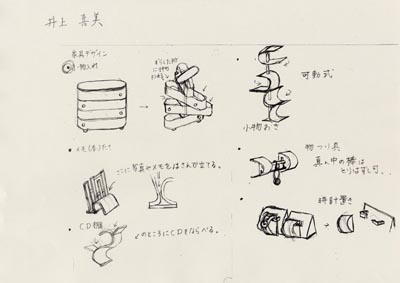 井上 喜美
家具デザイン
小物入れ
ずらした所
に小物
メモ(本)たて
ここに写真やメモをはさんが立てる。
CD棚
のところにCDをならべる。
可動式
小物おき
物つり具
真ん中の棒は
とりはずし可..
時計置き